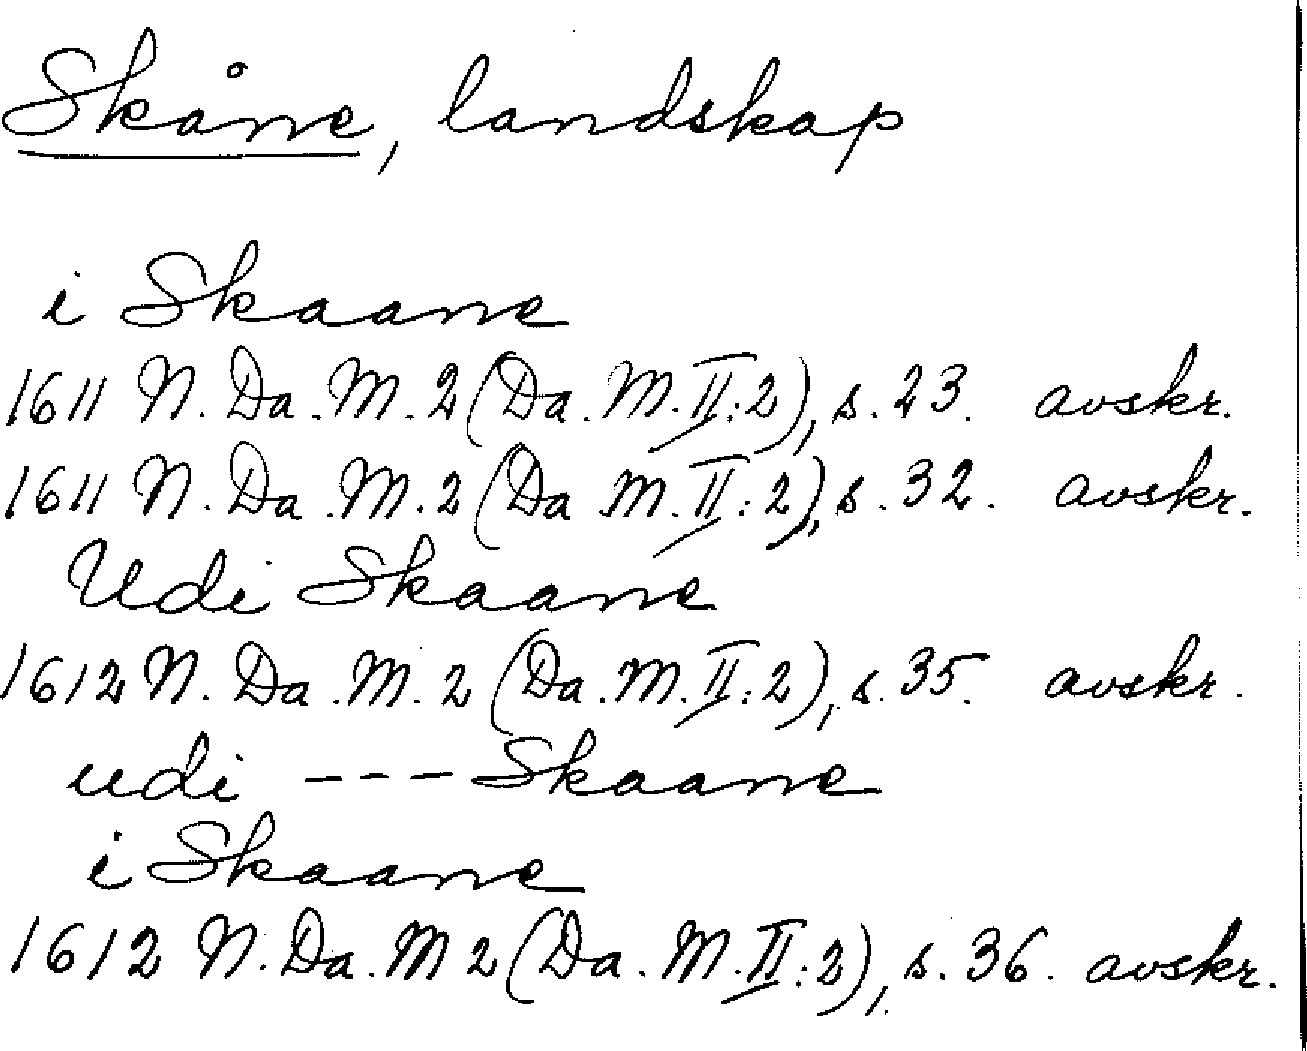 Skåne, landskap
i Skaane
1611 N. Da. M. 2 (Da. M. II:2), s. 23. avskr.
1611 N. Da. M. 2 (Da M. II:2), s. 32. avskr.
Udi Skaane
1612 N. Da. M. 2 (Da. M. II:2), s. 35. avskr.
udi --- Skaane
i Skaane
1612 N. Da. M 2 (Da. M. II:2), s. 36. avskr.